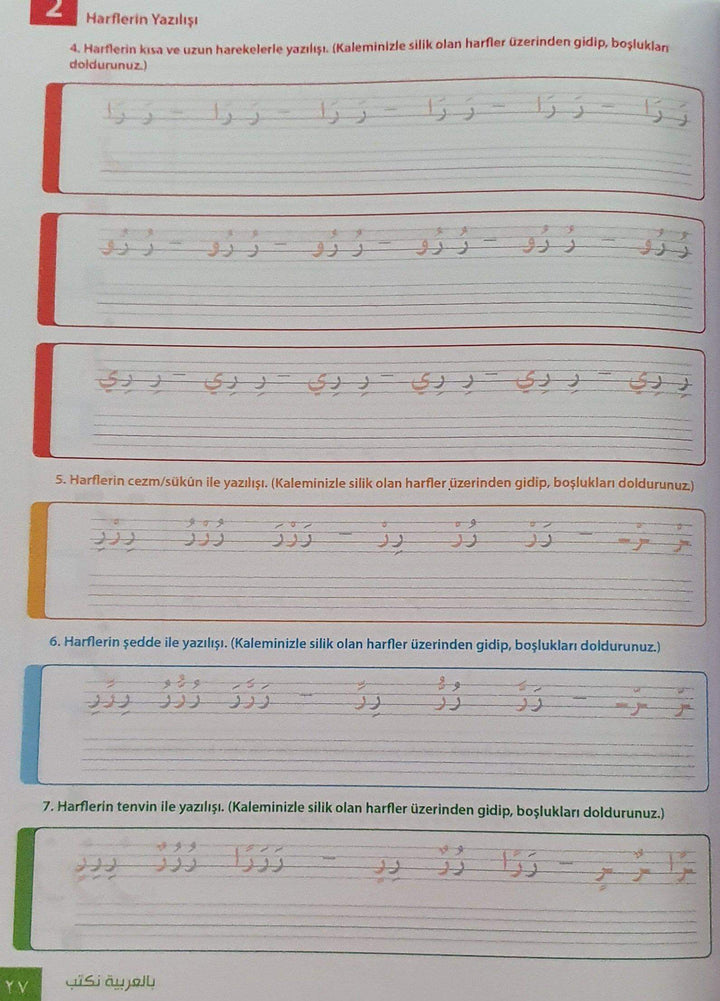 2
Harflerin Yazılışı
4. Harflerin kısa ve uzun harekelerle yazılışı. (Kaleminizle silik olan harfler üzerinden gidip, boşlukları
doldurunuz.)
رَ رَا – رَ رَا – رَ رَا – رَ رَا – رَ رَا – رَ رَا
رُ رُو – رُ رُو – رُ رُو – رُ رُو – رُ رُو – رُ رُو
رِ رِي – رِ رِي – رِ رِي – رِ رِي – رِ رِي – رِ رِي
5. Harflerin cezm/sükûn ile yazılışı. (Kaleminizle silik olan harfler üzerinden gidip, boşlukları doldurunuz.)
رْ ـرْ – رَرْ رُرْ رِرْ – رَرْرَ رُرْرُ رِرْرِ
6. Harflerin şedde ile yazılışı. (Kaleminizle silik olan harfler üzerinden gidip, boşlukları doldurunuz.)
رّ ـرّ – رَرَّ رُرُّ رِرِّ – رَرَّرَ رُرُّرُ رِرِّرِ
7. Harflerin tenvin ile yazılışı. (Kaleminizle silik olan harfler üzerinden gidip, boşlukları doldurunuz.)
ـرًا ـرٌ ـرٍ – رَرًا رُرٌ رِرٍ – رَرَرًا رُرُرٌ رِرِرٍ
بالعربية نكتب
٢٧